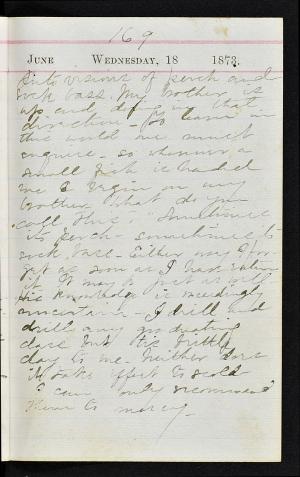 169
JUNE WEDNESDAY, 18 1873.
into visions of perch and
rock bass. My brother is
up and doing in that
direction - To learn in
this world we must
enquire - so whenever a
small fish is hauled
me I begin on my
brother "what do you
call this". Sometimes
its perch - sometimes its
rock bass - Either way I for-
get as soon as I have
it. It may be just as well
his knowledge is exceedingly
uncertain - I drill and
drill my graduating
class but its brittle
clay to me. Neither does
it take effect to scold
I can only recommend
them to mercy -